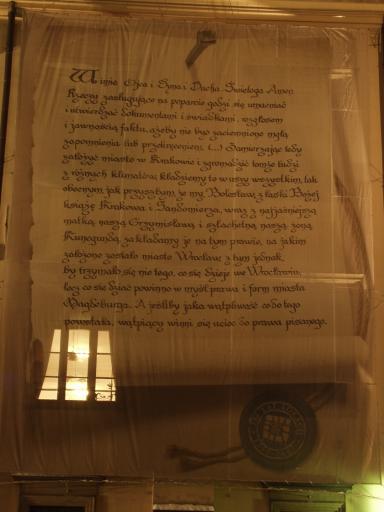 W imię Ojca i Syna i Ducha Świętego Amen.
Rzeczy zasługujące na poparcie godzi się umacniać
i utwierdzać dokumentami i świadkami, rozgłosem
i jawnością faktu, ażeby nie było zaciemnione mgłą
zapomnienia lub przekręceniem. (...) Zamierzając tedy
założyć miasto w Krakowie i zgromadzić tamże ludzi
z różnych klimatów, kładziemy to w uszy wszystkim, tak
obecnym jak przyszłym, że my, Bolesław, z łaski Bożej
książę Krakowa i Sandomierza, wraz z najjaśniejszą
matką naszą Grzymisławą i szlachetną naszą żoną
Kunegundą zakładamy je na tym prawie, na jakim
założone zostało miasto Wrocław, z tym jednak,
by trzymało się nie tego, co się dzieje we Wrocławiu,
lecz co się dziać powinno w myśl prawa i form miasta
Magdeburga. A jeśliby jaka wątpliwość co do tego
powstała, wątpiący winni się uciec do prawa pisanego.